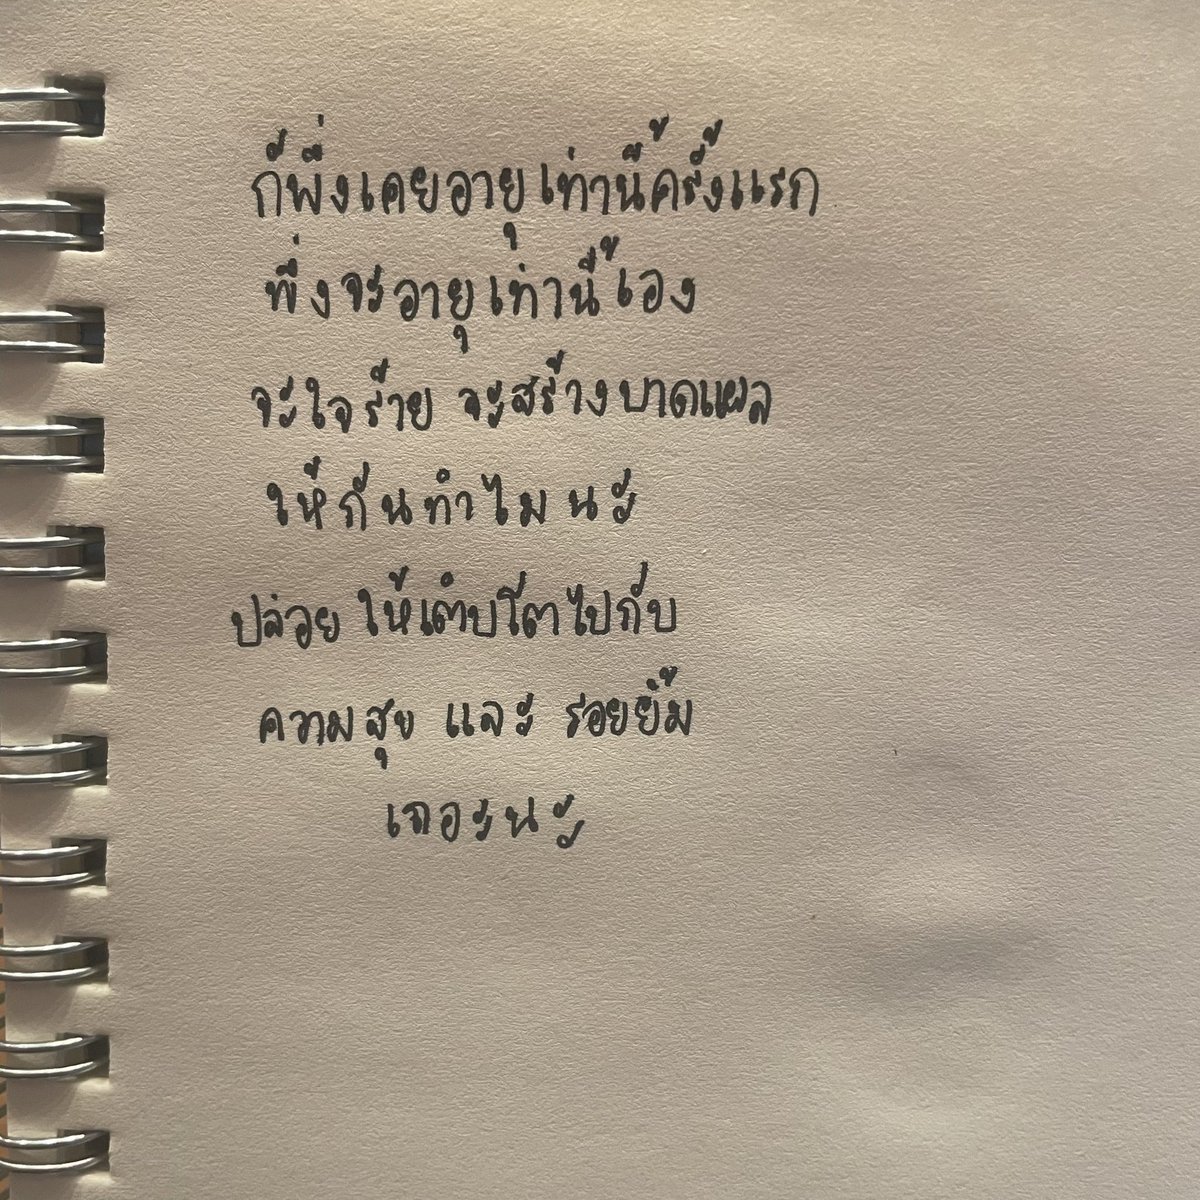 ก็พึ่งเคยอายุเท่านี้ครั้งแรก
พึ่งจะอายุเท่านี้เอง
จะใจร้าย จะสร้างบาดแผล
ให้กันทำไมนะ
ปล่อยให้เติบโตไปกับ
ความสุข และ รอยยิ้ม
เถอะนะ